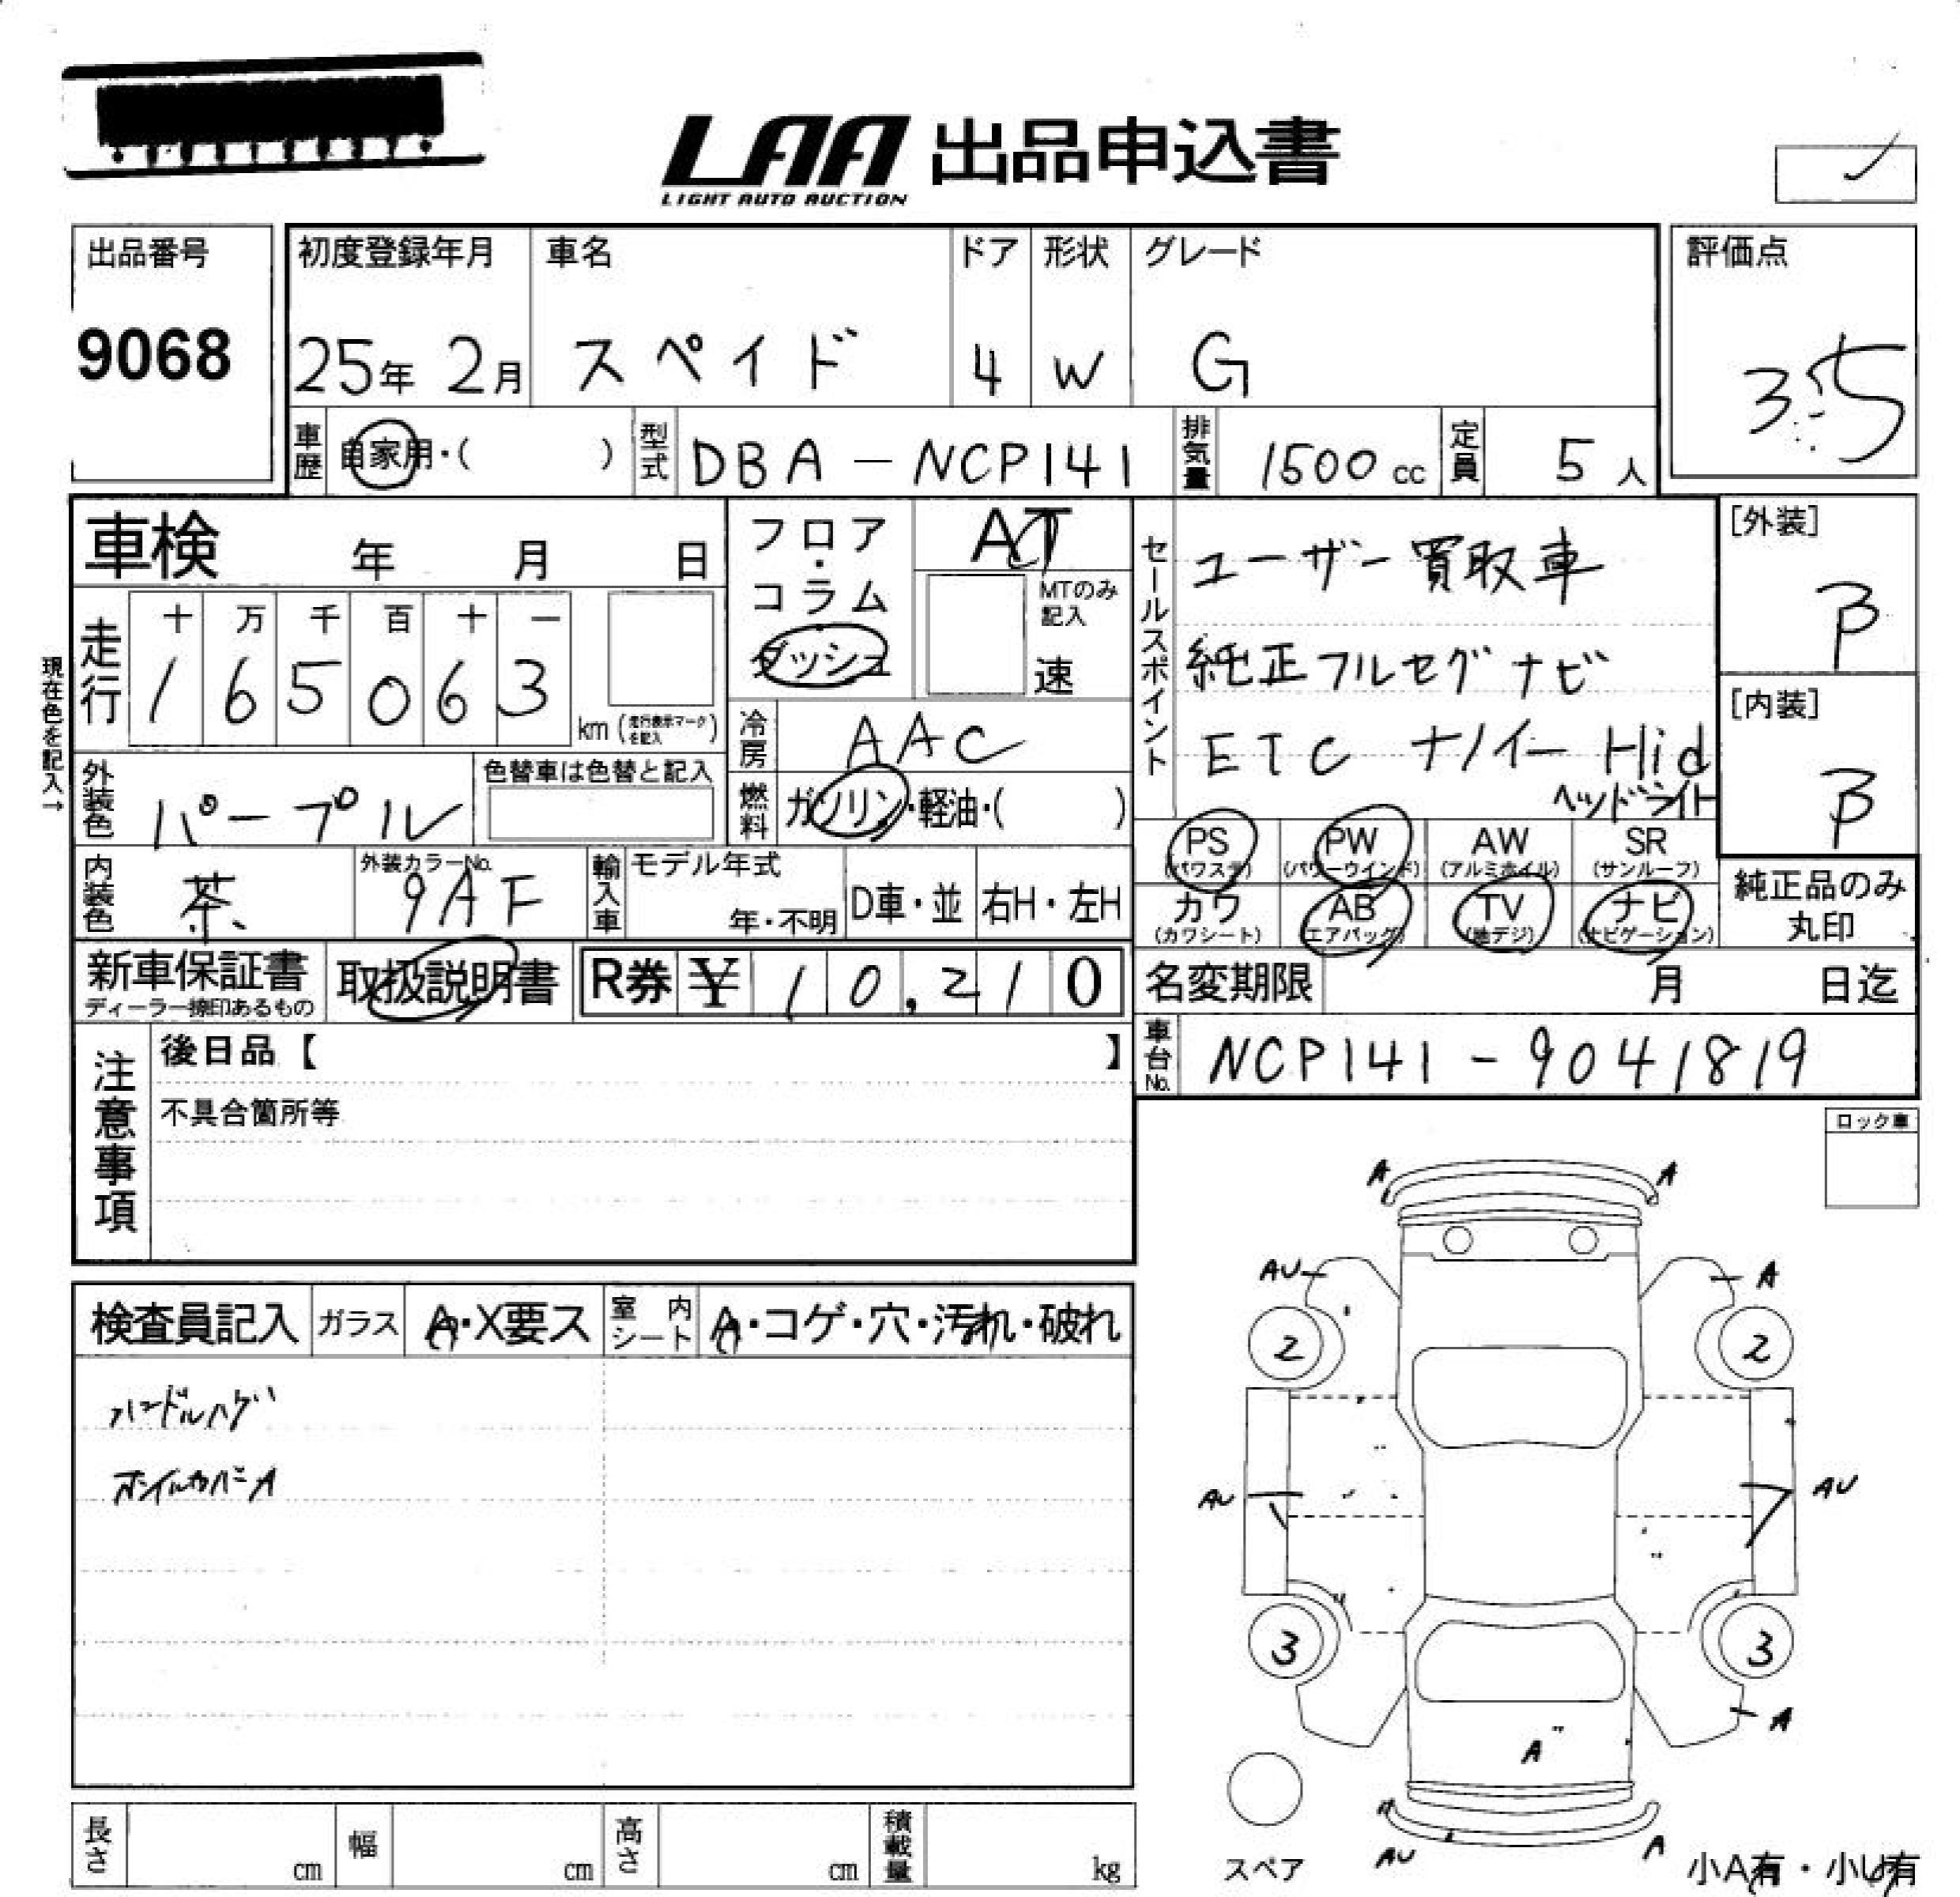 LAA 出品申込書
LIGHT AUTO AUCTION
出品番号
9068
初度登録年月
25年 2月
車名
スペイド
ドア
4
形状
W
グレード
G
評価点
3.5
車歴 自家用・( )
型式 DBA-NCP141
排気量 1500 cc
定員 5 人
車検 年 月 日
フロア・コラム・ダッシュ
AT
MTのみ記入
速
現在色を記入→
走行
十 万 千 百 十 一
1 6 5 0 6 3
km (走行表示マークを記入)
冷房 AAC
燃料 ガソリン・軽油・( )
外装色 パープル
色替車は色替と記入
内装色 茶
外装カラーNo.
9AF
輸入車
モデル年式
年・不明
D車・並
右H・左H
セールスポイント
ユーザー買取車
純正フルセグナビ
ETC ナノイー Hid
ヘッドライト
[外装]
B
[内装]
B
PS (パワステ)
PW (パワーウインド)
AW (アルミホイル)
SR (サンルーフ)
カワ (カワシート)
AB (エアバッグ)
TV (地デジ)
ナビ (ナビゲーション)
純正品のみ丸印
新車保証書
ディーラー捺印あるもの
取扱説明書
R券 ¥ 10,210
名変期限 月 日迄
車台No. NCP141-9041819
注意事項
後日品【 】
不具合箇所等
ロック車
検査員記入
ガラス A・X要ス
室内シート A・コゲ・穴・汚れ・破れ
ハンドルハゲ
ホイルカバーA
A A
AU A
2 2
AU AU
3 3
A
A
AU A
スペア
小A有・小U有
長さ cm
幅 cm
高さ cm
積載量 kg